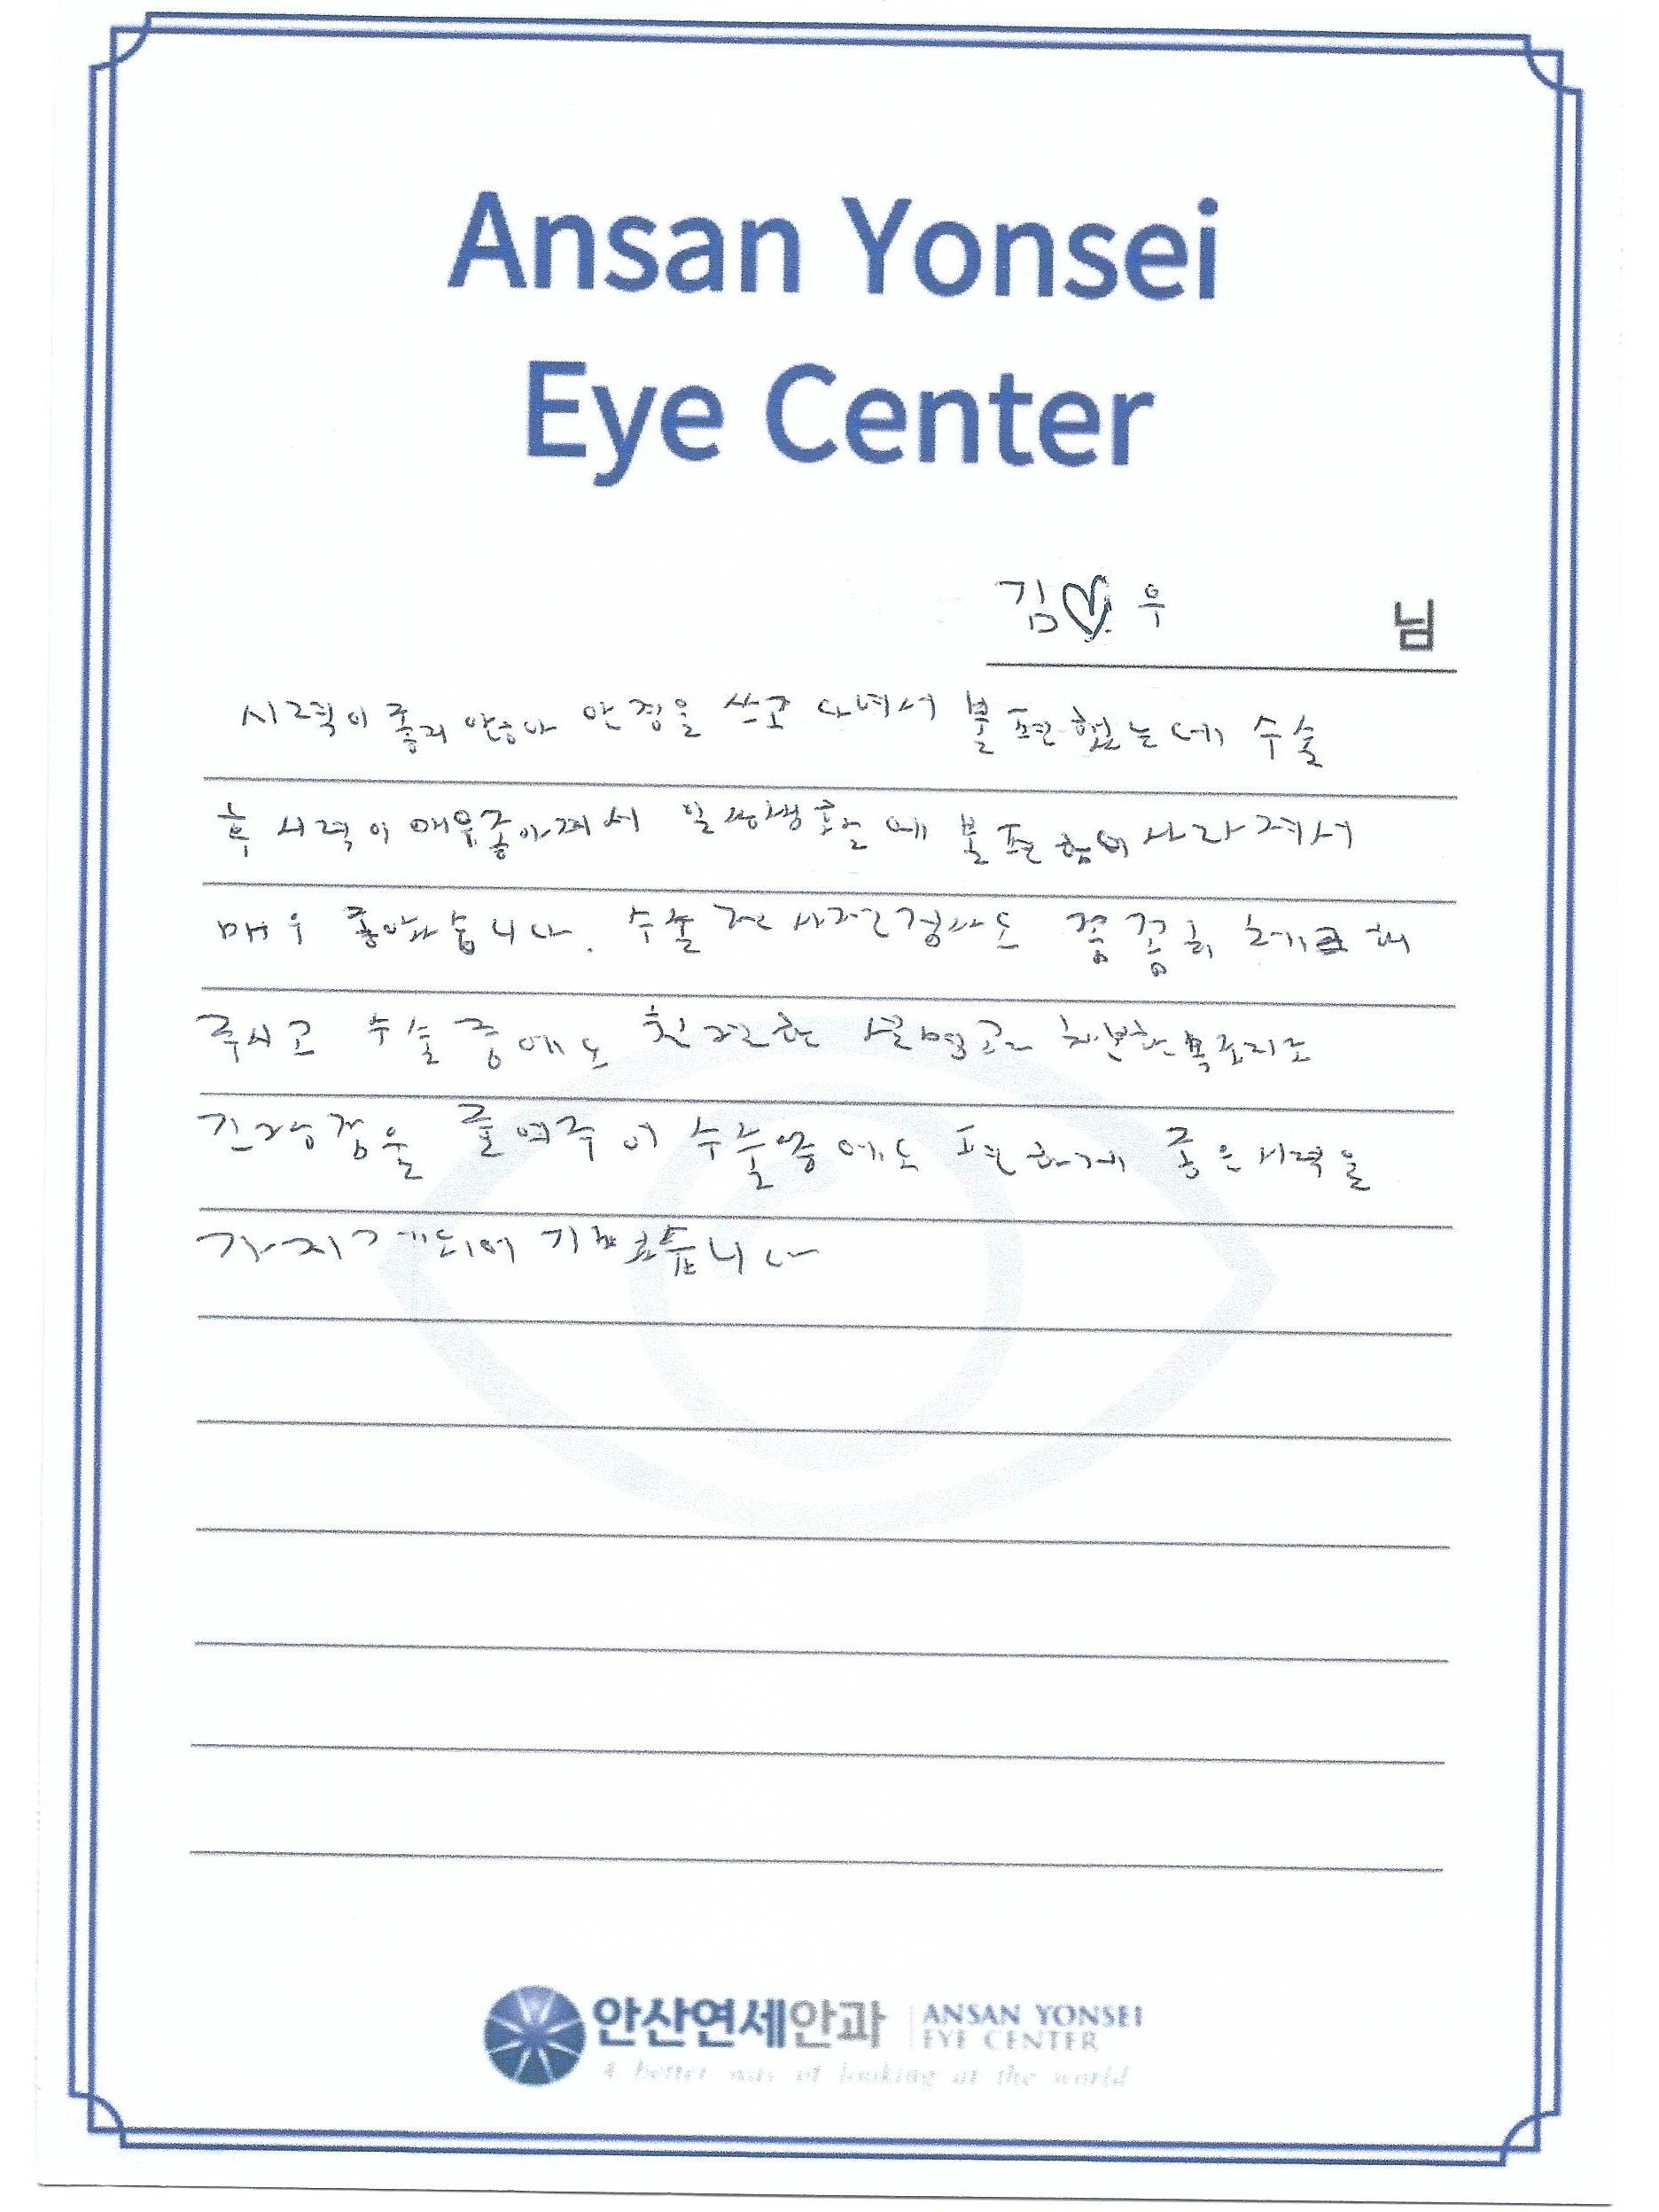 Ansan Yonsei
Eye Center
김♡우 님
시력이 좋지 않아 안경을 쓰고 다녀서 불편했는데 수술
후 시력이 매우 좋아져서 일상생활에 불편함이 사라져서
매우 좋았습니다. 수술 전 사전검사도 꼼꼼히 체크해
주시고 수술 중에도 친절한 설명과 차분한 목소리로
긴장감을 줄여주어 수술중에도 편하게 좋은 시력을
가지게되어 기쁩니다
안산연세안과 ANSAN YONSEI
EYE CENTER
A better way of looking at the world